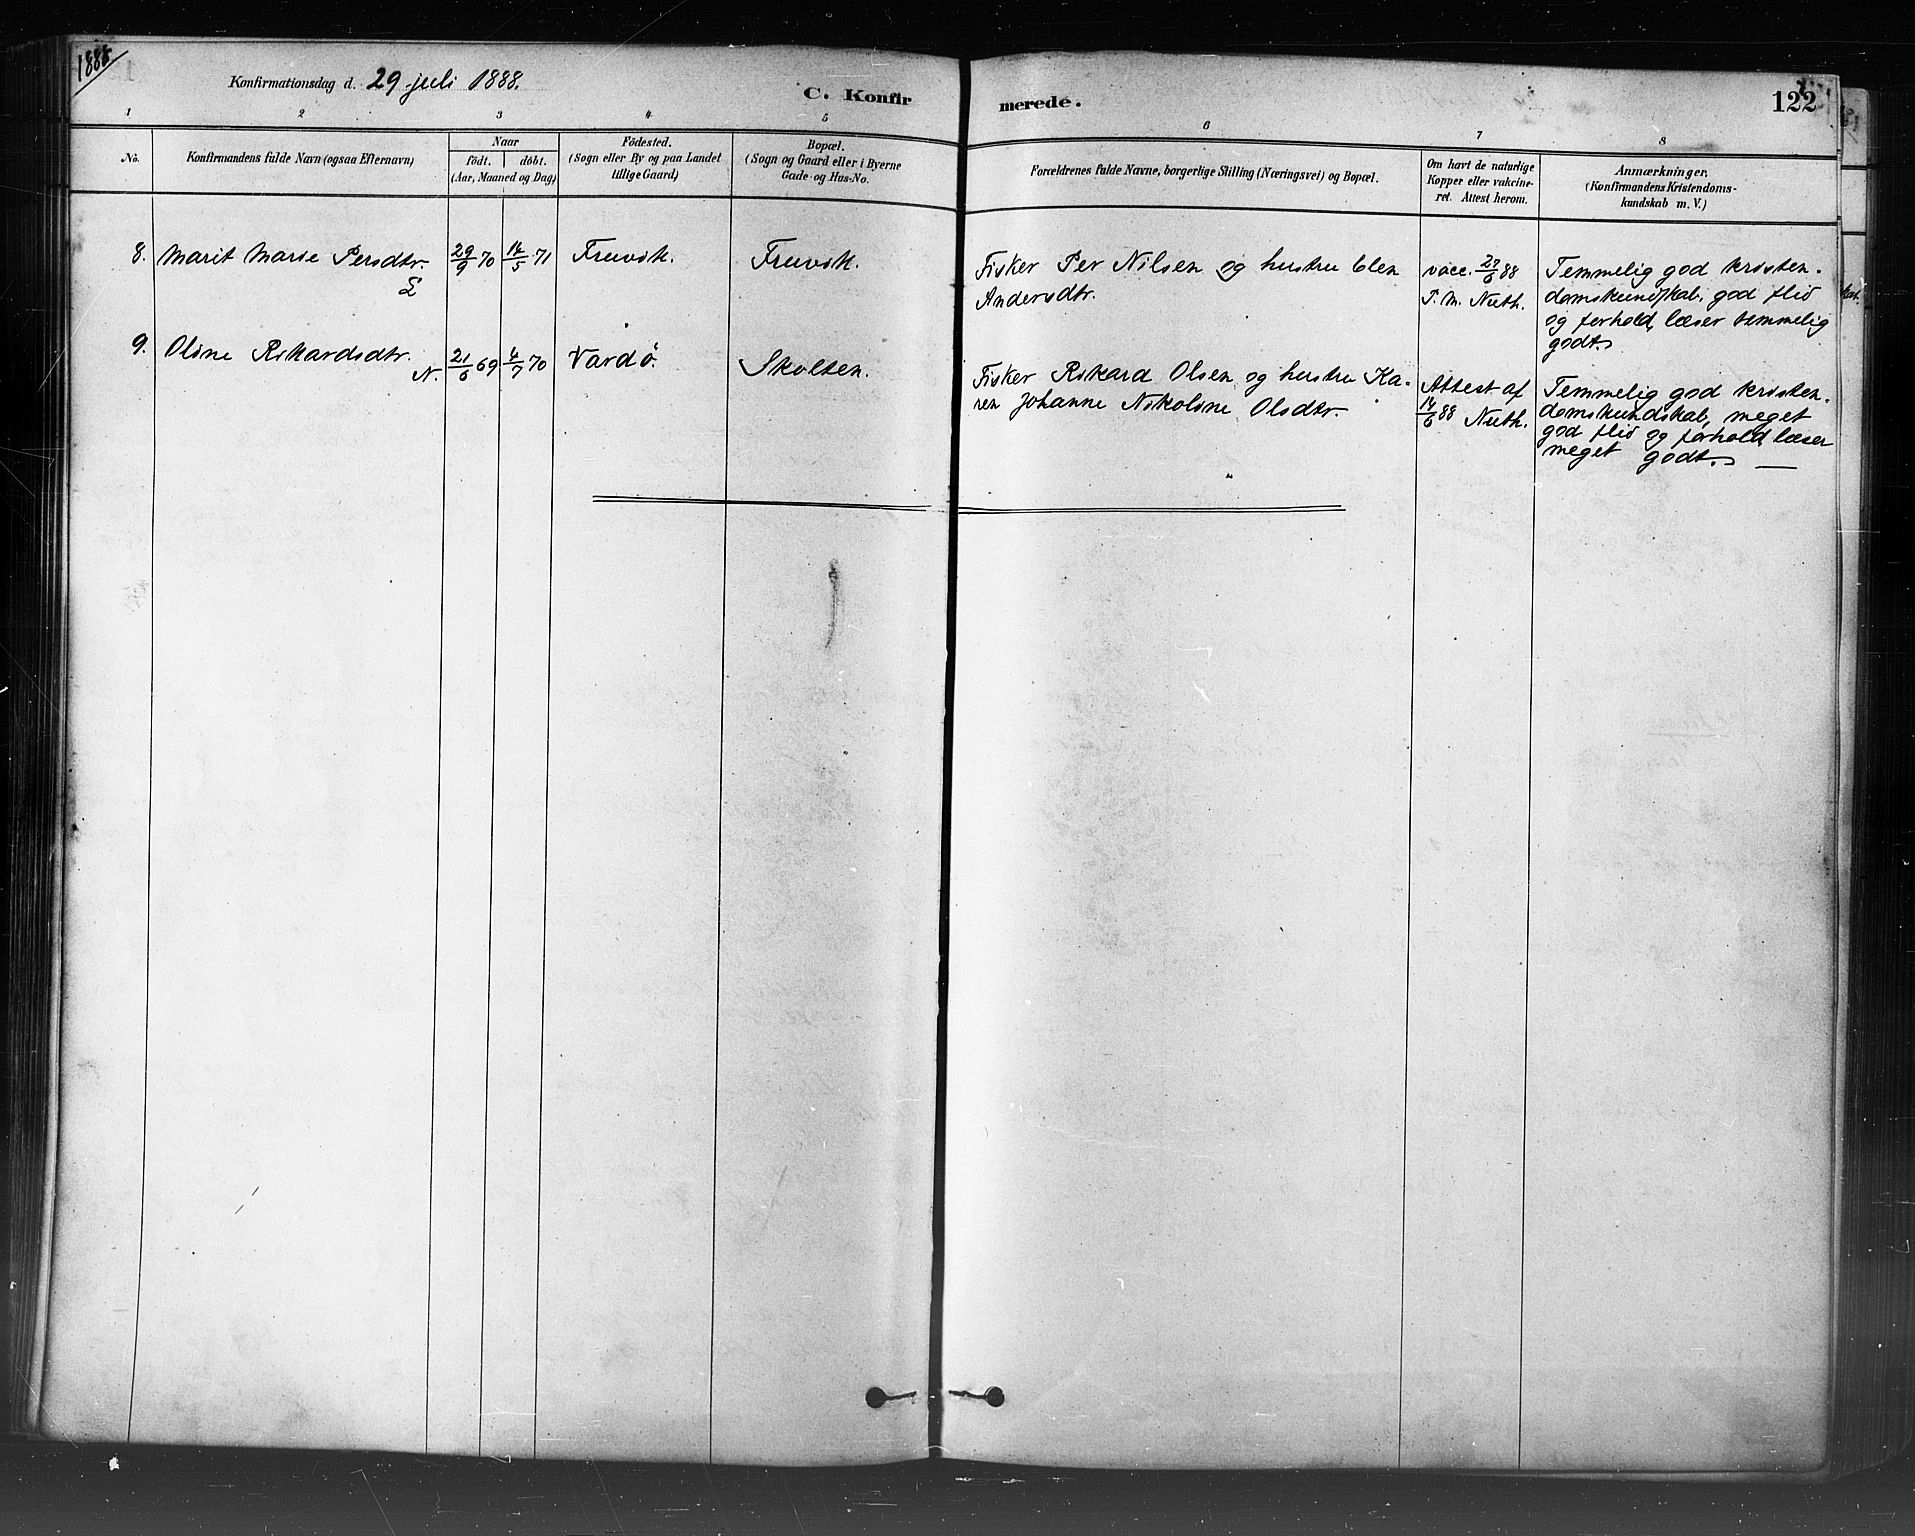 1888
Konfirmationsdag d. 29 juli 1888.
C. Konfirmerede.
122
1 2 3 4 5 6 7 8
No.
Konfirmandens fulde Navn (ogsaa Efternavn)
Naar
født. døbt.
(Aar, Maaned og Dag)
Fødested.
(Sogn eller By og paa Landet
tillige Gaard)
Bopæl.
(Sogn og Gaard eller i Byerne
Gade og Hus-No.
Forældrenes fulde Navne, borgerlige Stilling (Næringsvei) og Bopæl.
Om havt de naturlige
Kopper eller vakcine-
ret. Attest herom.
Anmærkninger.
(Konfirmandens Kristendoms-
kundskab m. V.)
8. Marit Marie Persdtr. 29/9 70 14/5 71
L
Fruvik.
Fruvik.
Fisker Per Nilsen og hustru Elen
Andersdtr.
vacc. 27/6 88
P. M. Nuth.
Temmelig god kristen-
domskundskab, god flid
og forhold, læser temmelig
godt.
9. Oline Rikardsdtr. 21/6 69 4/7 70
N.
Vardö.
Skolten.
Fisker Rikard Olsen og hustru Ka-
ren Johanne Nikoline Olsdtr.
Attest af
14/6 88 Nuth.
Temmelig god kristen-
domskundskab, meget
god flid og forhold, læser
meget godt. —